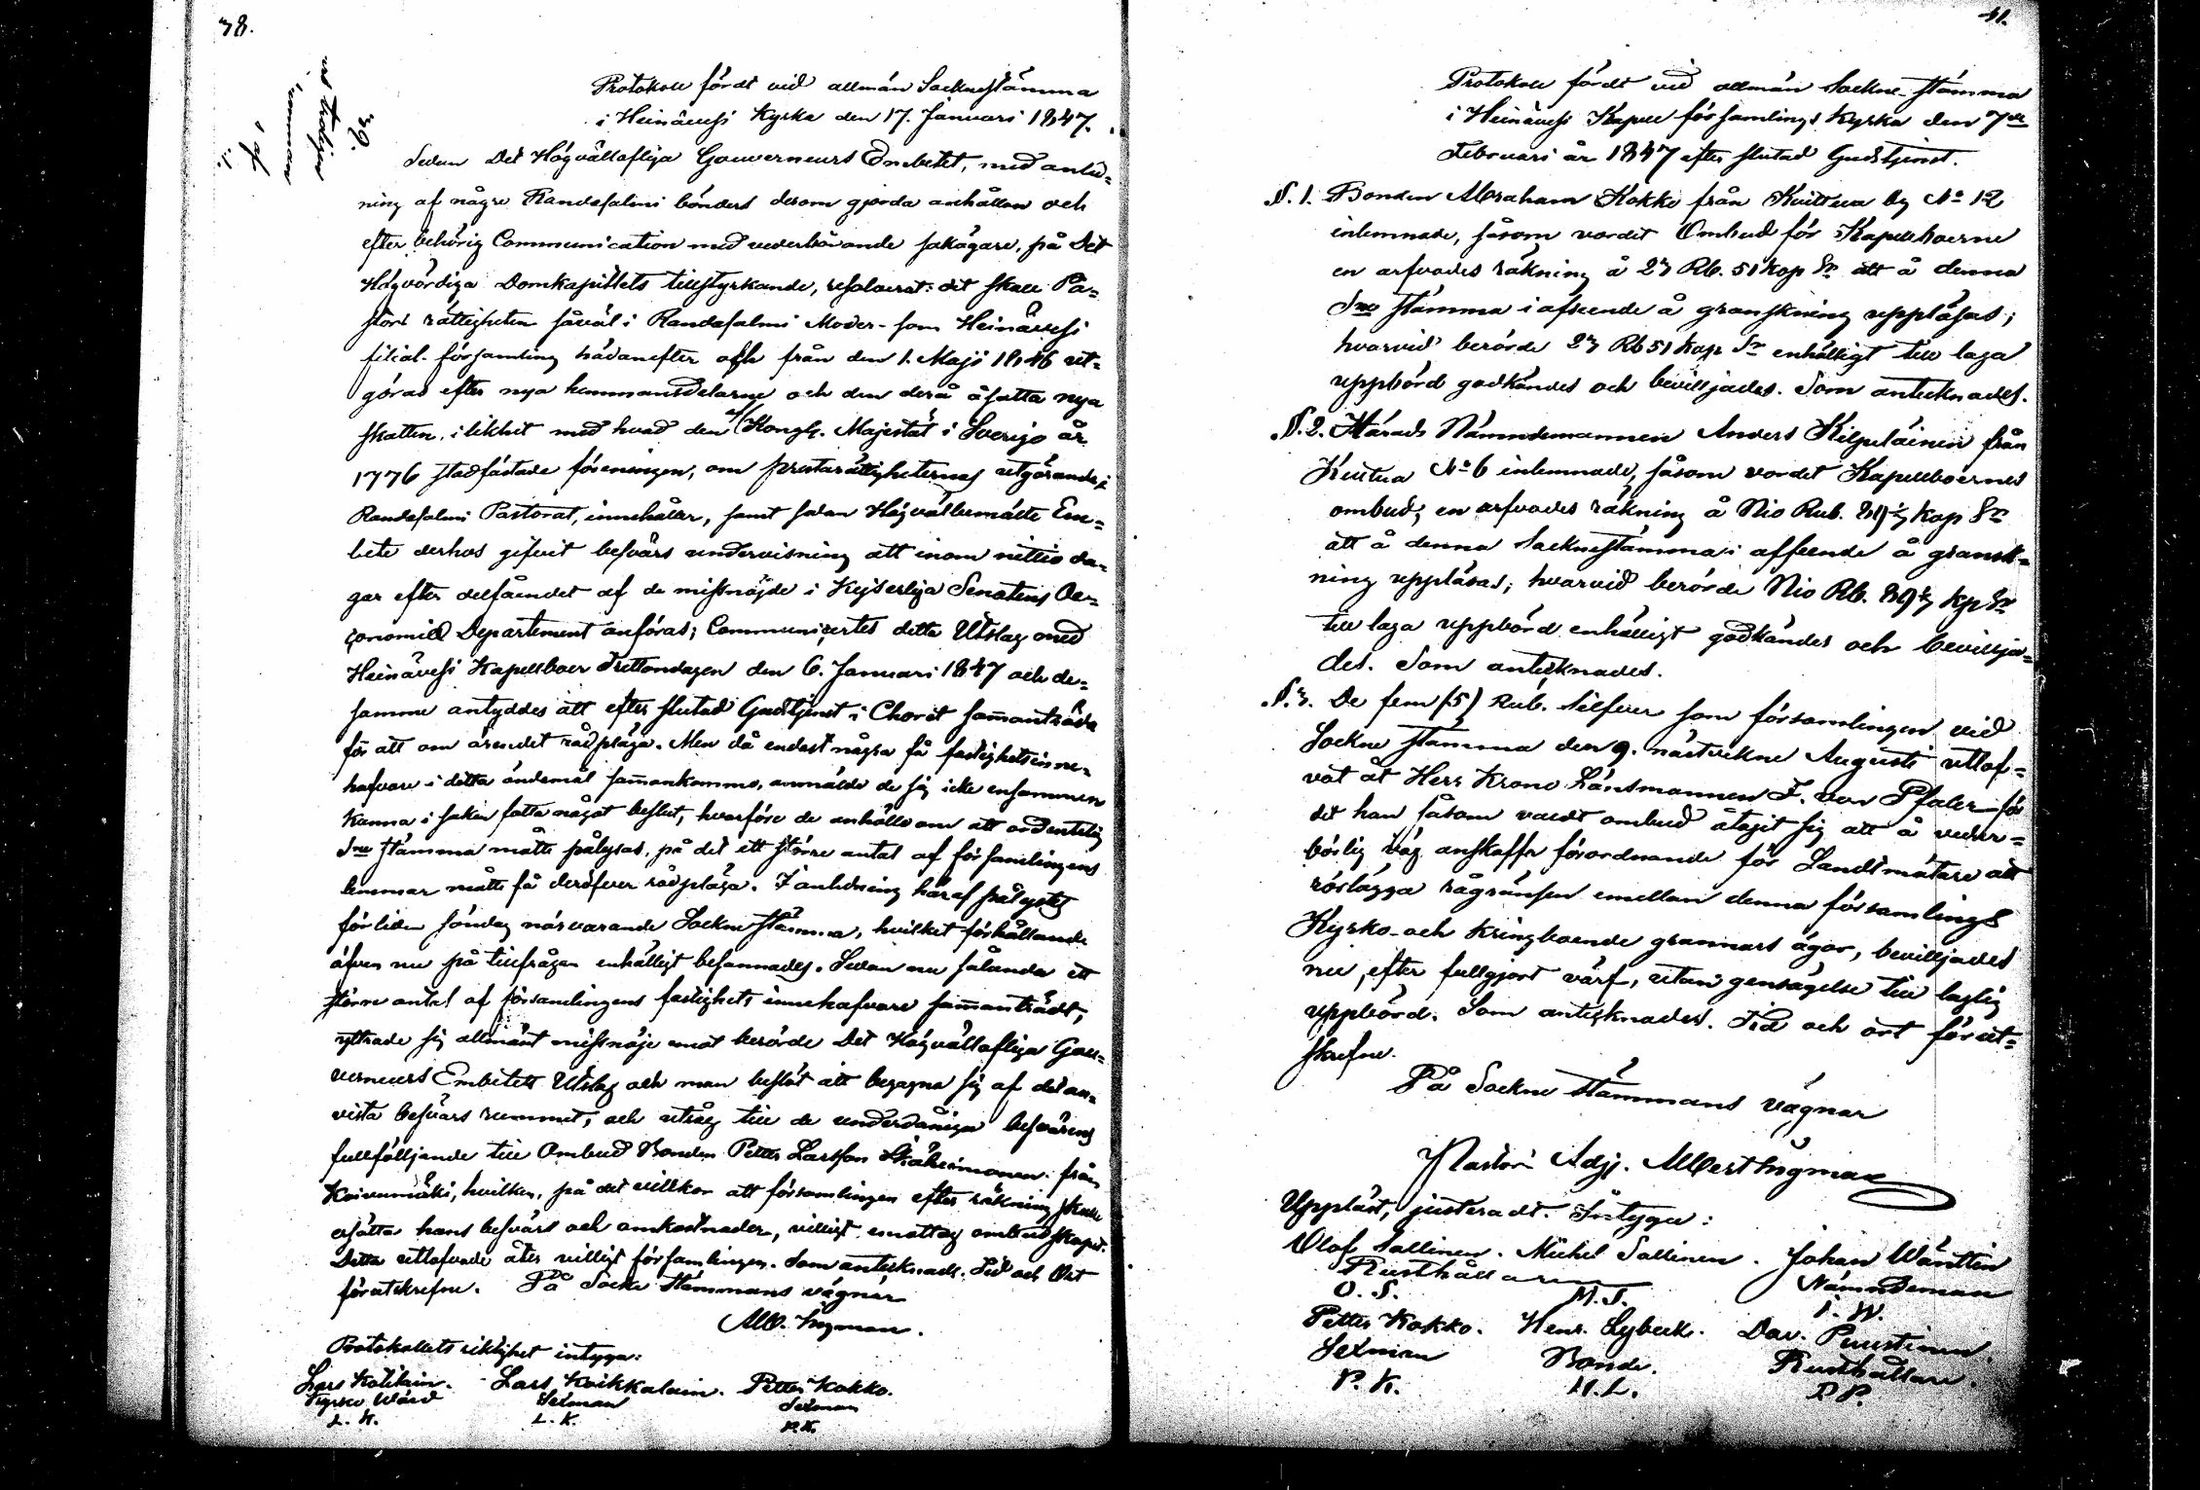 38.
39.
Protokoll fördt vid allmän Sockne stämma
i Heinävesi Kyrka den 17. Januari 1847.
Sedan Det Högvällofliga Gouverneurs Embetet, med anled=
ning af några Randasalmi bönders derom gjorda anhållan och
efter behörig Communication med vederbörande sakägare, på Det
Högvördiga Domkapitlets tillstyrkande, resolverat: det skall Pa=
stors rättigheten såväl i Randasalmi Moder- som Heinävesi
filial-församling hädanefter och från den 1. Maji 1846 ut=
göras efter nya hemmansdelarne och den derå åsatta nya
skatten, i likhet med hvad den af Kongl. Majestät i Sverige år
1776 stadfästade föreningen, om prestarättigheternas utgörande i
Randasalmi Pastorat, innehåller, samt sedan Högvälbemälte Em=
bete derhos gifvit besvärs undervisning att inom nittio da=
gar efter delfåendet af de missnöjde i Kejserliga Senatens Oe=
conomie Departement anföras; Communicertes detta Utslag med
Heinävesi Kapellboer Trettondagen den 6. Januari 1847 och de=
samme antyddes att efter slutad Gudstjenst i Choret sammanträda
för att om ärendet rådpläga. Men då endast några få fastighetsinne=
hafvare i detta ändemål sammankommo, anmälde de sig icke ensammen
kunna i saken fatta något beslut, hvarföre de anhöllo om att ordentelig
Sne stämma måtte pålysas, på det ett större antal af församlingens
lemmar måtte få deröfver rådpläga. I anledning häraf pålystes
förliden söndag närvarande Sockne stämma, hvilket förhållande
äfven nu på tillfrågan enhälligt besannades. Sedan nu sålunda ett
större antal af församlingens fastighets innehafvare sammanträdt,
yttrade sig allmänt missnöje emot berörde Det Högvällofliga Gou=
verneurs Embetets Utslag och man beslöt att begagna sig af det an=
vista besvärs rummet, och utsåg till de underdåniga besvärens
fullföljande till Ombud Bonden Petter Larsson från
Koivumäki, hvilken, på det villkor att församlingen efter räkning skulle
ersätta hans besvär och omkostnader, villigt emottog ombudskapet.
Detta utlofvade åter villigt församlingen. Som antecknads. Tid och Ort
förutskrefne. På Sockne Stämmans vägnar
Alb. Ingman.
Protokollets riktighet intyga:
Lars Kotilain. Lars Koikkalain. Petter Kokko.
Kyrko Wärd Sexman Sexman
L. K. L. K. P. K.
41.
Protokoll fördt vid allmän Sockne-stämma
i Heinävesi Kapell församlings Kyrka den 7de
Februari år 1847 efter slutad Gudstjenst.
§. 1. Bonden Abraham Kokko från by No 12
inlemnade, såsom vordet Ombud för Kapellboerne
en arfvodes räkning å 23 Rb. 51 kop Sr att å denna
Sne stämma i afseende å granskning uppläsas;
hvarvid berörde 23 Rb 51 kop Sr enhälligt till laga
uppbörd godkändes och bevilljades. Som antecknades.
§. 2. Härads Nämndemannen Anders Kilpeläinen från
No 6 inlemnade, såsom vordet Kapellboernes
ombud, en arfvodes räkning å Nio Rub. kop Sr
att å denna Socknestämma i afseende å gransk=
ning uppläsas; hvarvid berörde Nio Rb. kp Sr
till laga uppbörd enhälligt godkändes och bevillja=
des. Som antecknades.
§. 3. De fem (5) Rub. Silfver som församlingen vid
Sockne stämma den 9. nästvekne Augusti utlof=
vat åt Herr Krono Länsmannen F. von Pfaler för
det han såsom valdt ombud åtagit sig att å veder=
börlig väg anskaffa förordnande för Landtmätare att
röslägga rågränsen emellan denna församlings
Kyrko- och kringboende grannars ägor, bevilljades
nu, efter fullgjort värf, utan gensägelse till laglig
uppbörd. Som antecknades. Tid och ort förut=
skrefne.
På Sockne stämmans vägnar
Pastors Adj. Albert Ingman
Uppläst, justeradt. Intyga:
Olof Sallinen. Michel Sallinen. Johan Wänttin
Rusthållare Nämndeman
O. S. M. S. J. W.
Petter Kokko. Henr. Lybeck. Dav. Puustinen.
Sexman Bonde. Rusthållare.
P. K. H. L. D. P.